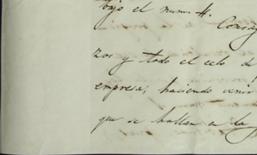 bajo el num. 4.
Consag
zos y todo el celo d
empresa; haciendo venir
que se hallan a la